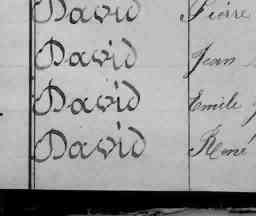 David Pierre
David Jean
David Emile
David René